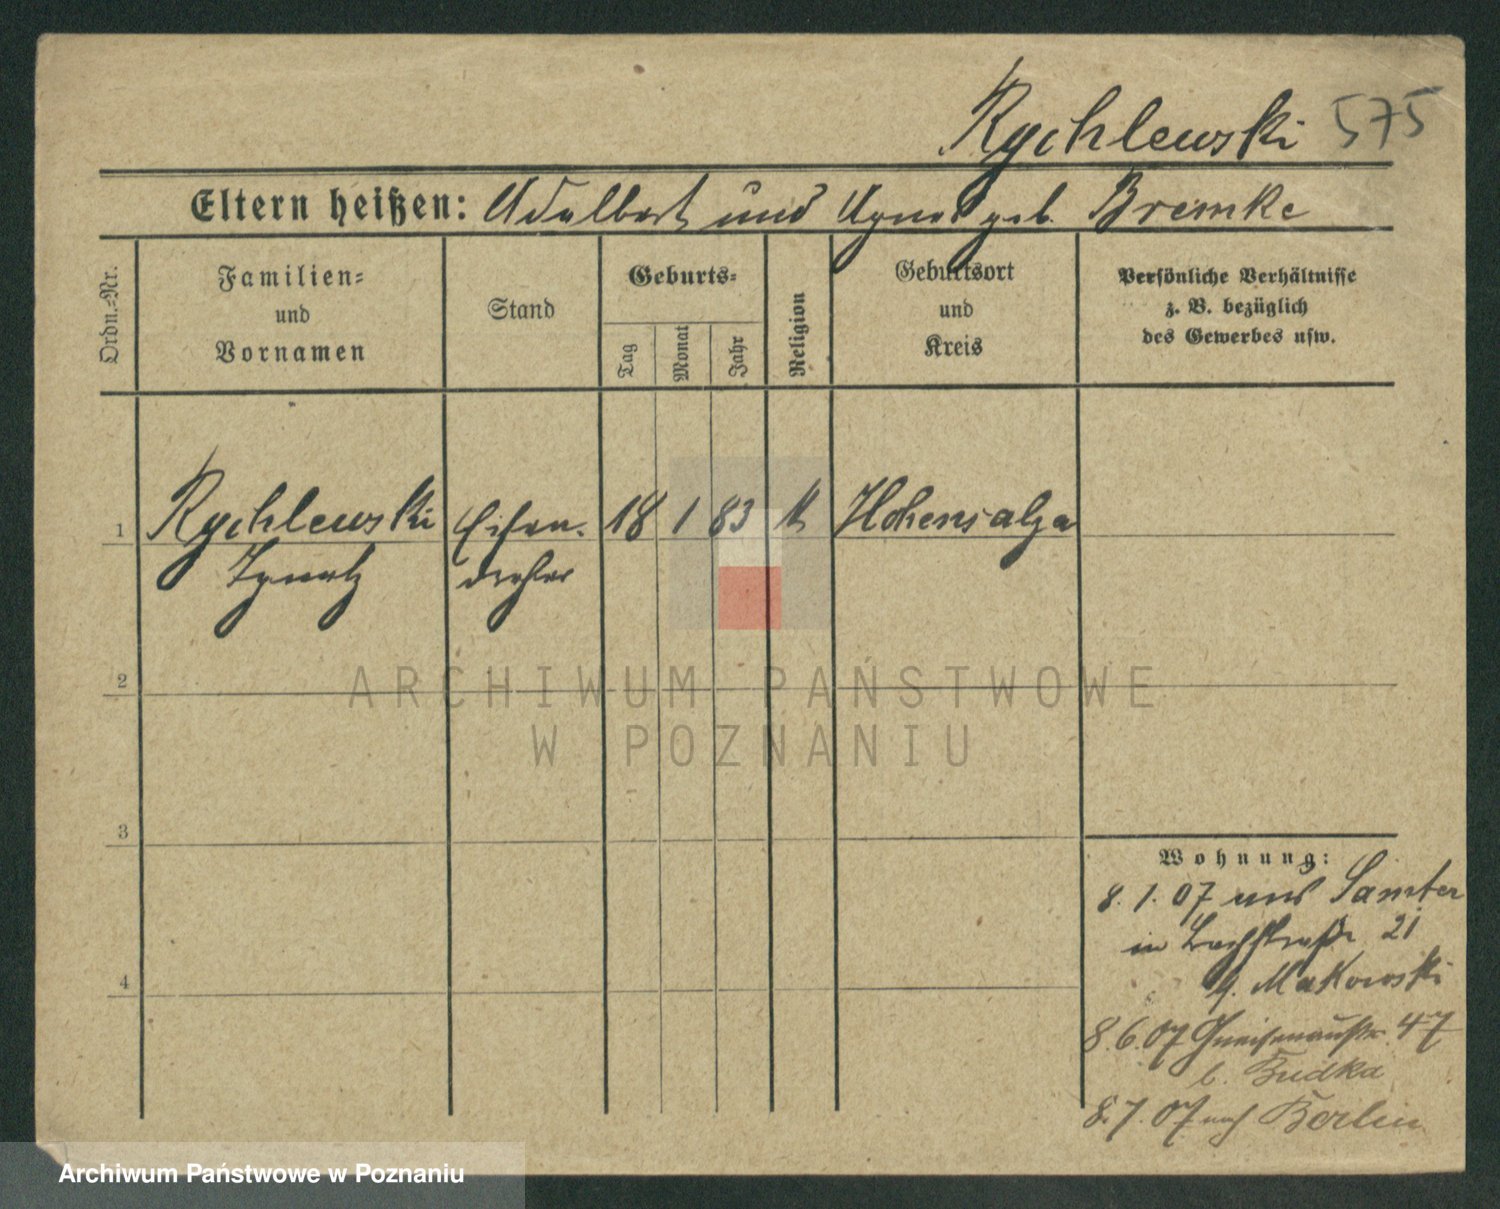 Rychlewski 575
Eltern heißen: Adalbert und Agnes geb. Bremke
Ordn.=Nr.
Familien=
und
Vornamen
Stand
Geburts=
Tag
Monat
Jahr
Religion
Geburtsort
und
Kreis
Persönliche Verhältnisse
z. B. bezüglich
des Gewerbes usw.
1 Rychlewski Eisen- 18 1 83 k Hohensalza
Ignatz dreher
2
3
4
Wohnung:
8. 1. 07 aus Samter
in Bachstraße 21
b. Makowski
8. 6. 07 Gneisenaustr. 47
b. Budka
8. 7. 07 nach Berlin
ARCHIWUM PAŃSTWOWE
W POZNANIU
Archiwum Państwowe w Poznaniu